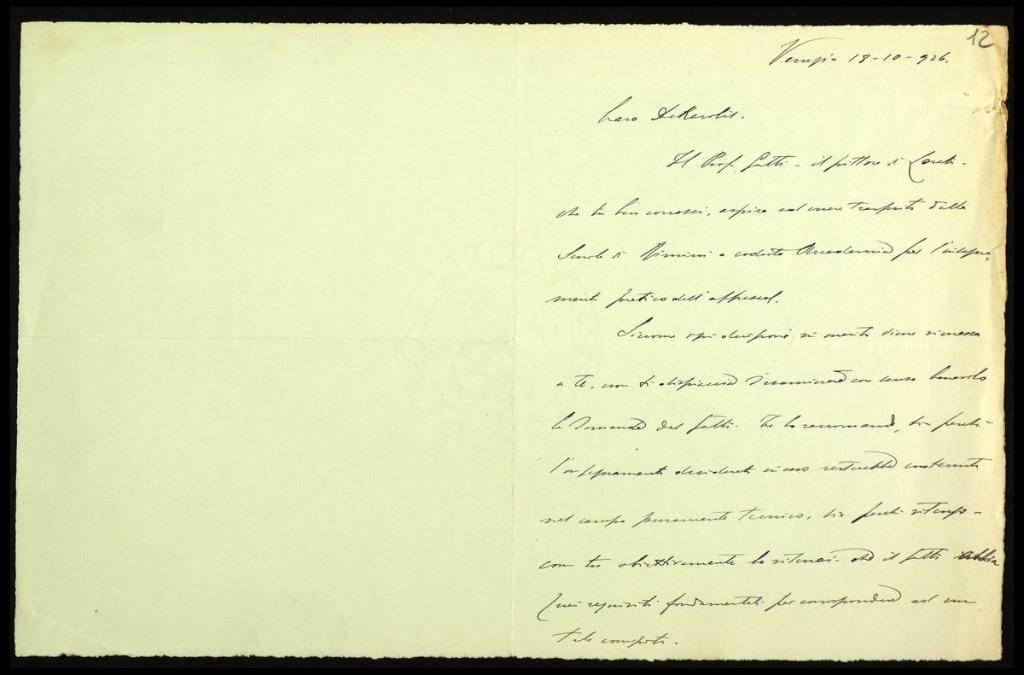 12
Venezia 18-10-926.
Caro DeKarolis.
Il Prof. Gatti - il pittore di Loreto -
che tu ben conosci, aspira ad essere trasferito dalla
Scuola di Rimini a codesta Accademia per l'insegna-
mento pratico dell'affresco.
Siccome ogni decisione in merito viene rimessa
a te, non ti dispiaccia d'esaminare con senso benevolo
la domanda del Gatti. Te lo raccomando, sia perchè
l'insegnamento desiderato in caso resterebbe contenuto
nel campo puramente tecnico, sia perchè
con tu obiettivamente lo ritenessi che il Gatti abbia
quei requisiti fondamentali per corrispondere ad un
tale compito.